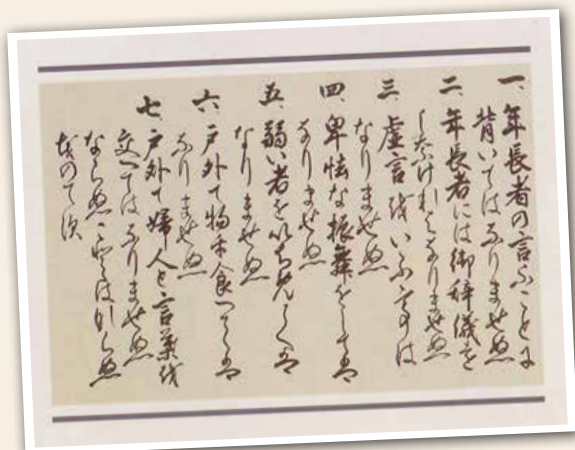 一、年長者の言ふことに
背いてはなりませぬ
二、年長者には御辞儀を
しなければなりませぬ
三、虚言をいふ事は
なりませぬ
四、卑怯な振舞をしてはなりませぬ
五、弱い者をいぢめてはなりませぬ
六、戸外で物を食べてはなりませぬ
七、戸外で婦人と言葉を
交へてはなりませぬ
ならぬことはならぬ
ものです